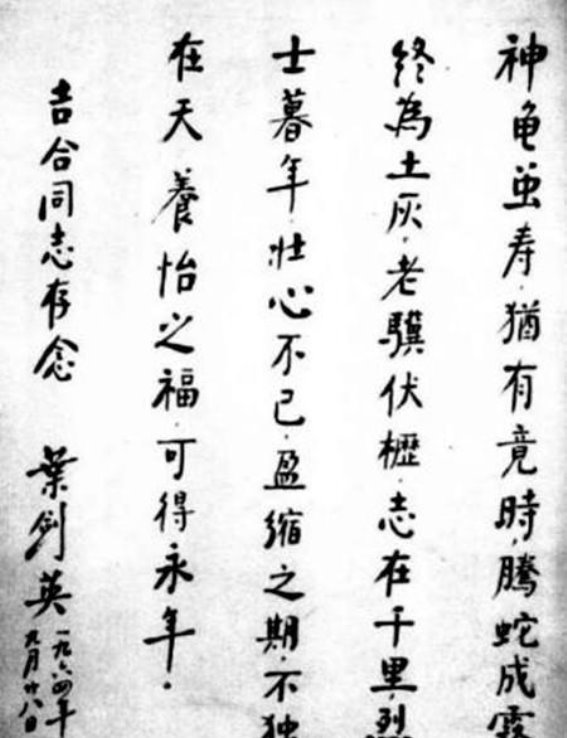 神龟虽寿．猶有竟時，騰蛇成霧
終為土灰．老驥伏櫪．志在千里．烈
士暮年．壯心不已．盈縮之期．不独
在天．養怡之福．可得永年．
吉合同志存念　葉剑英
一九六四年
九月廿八日